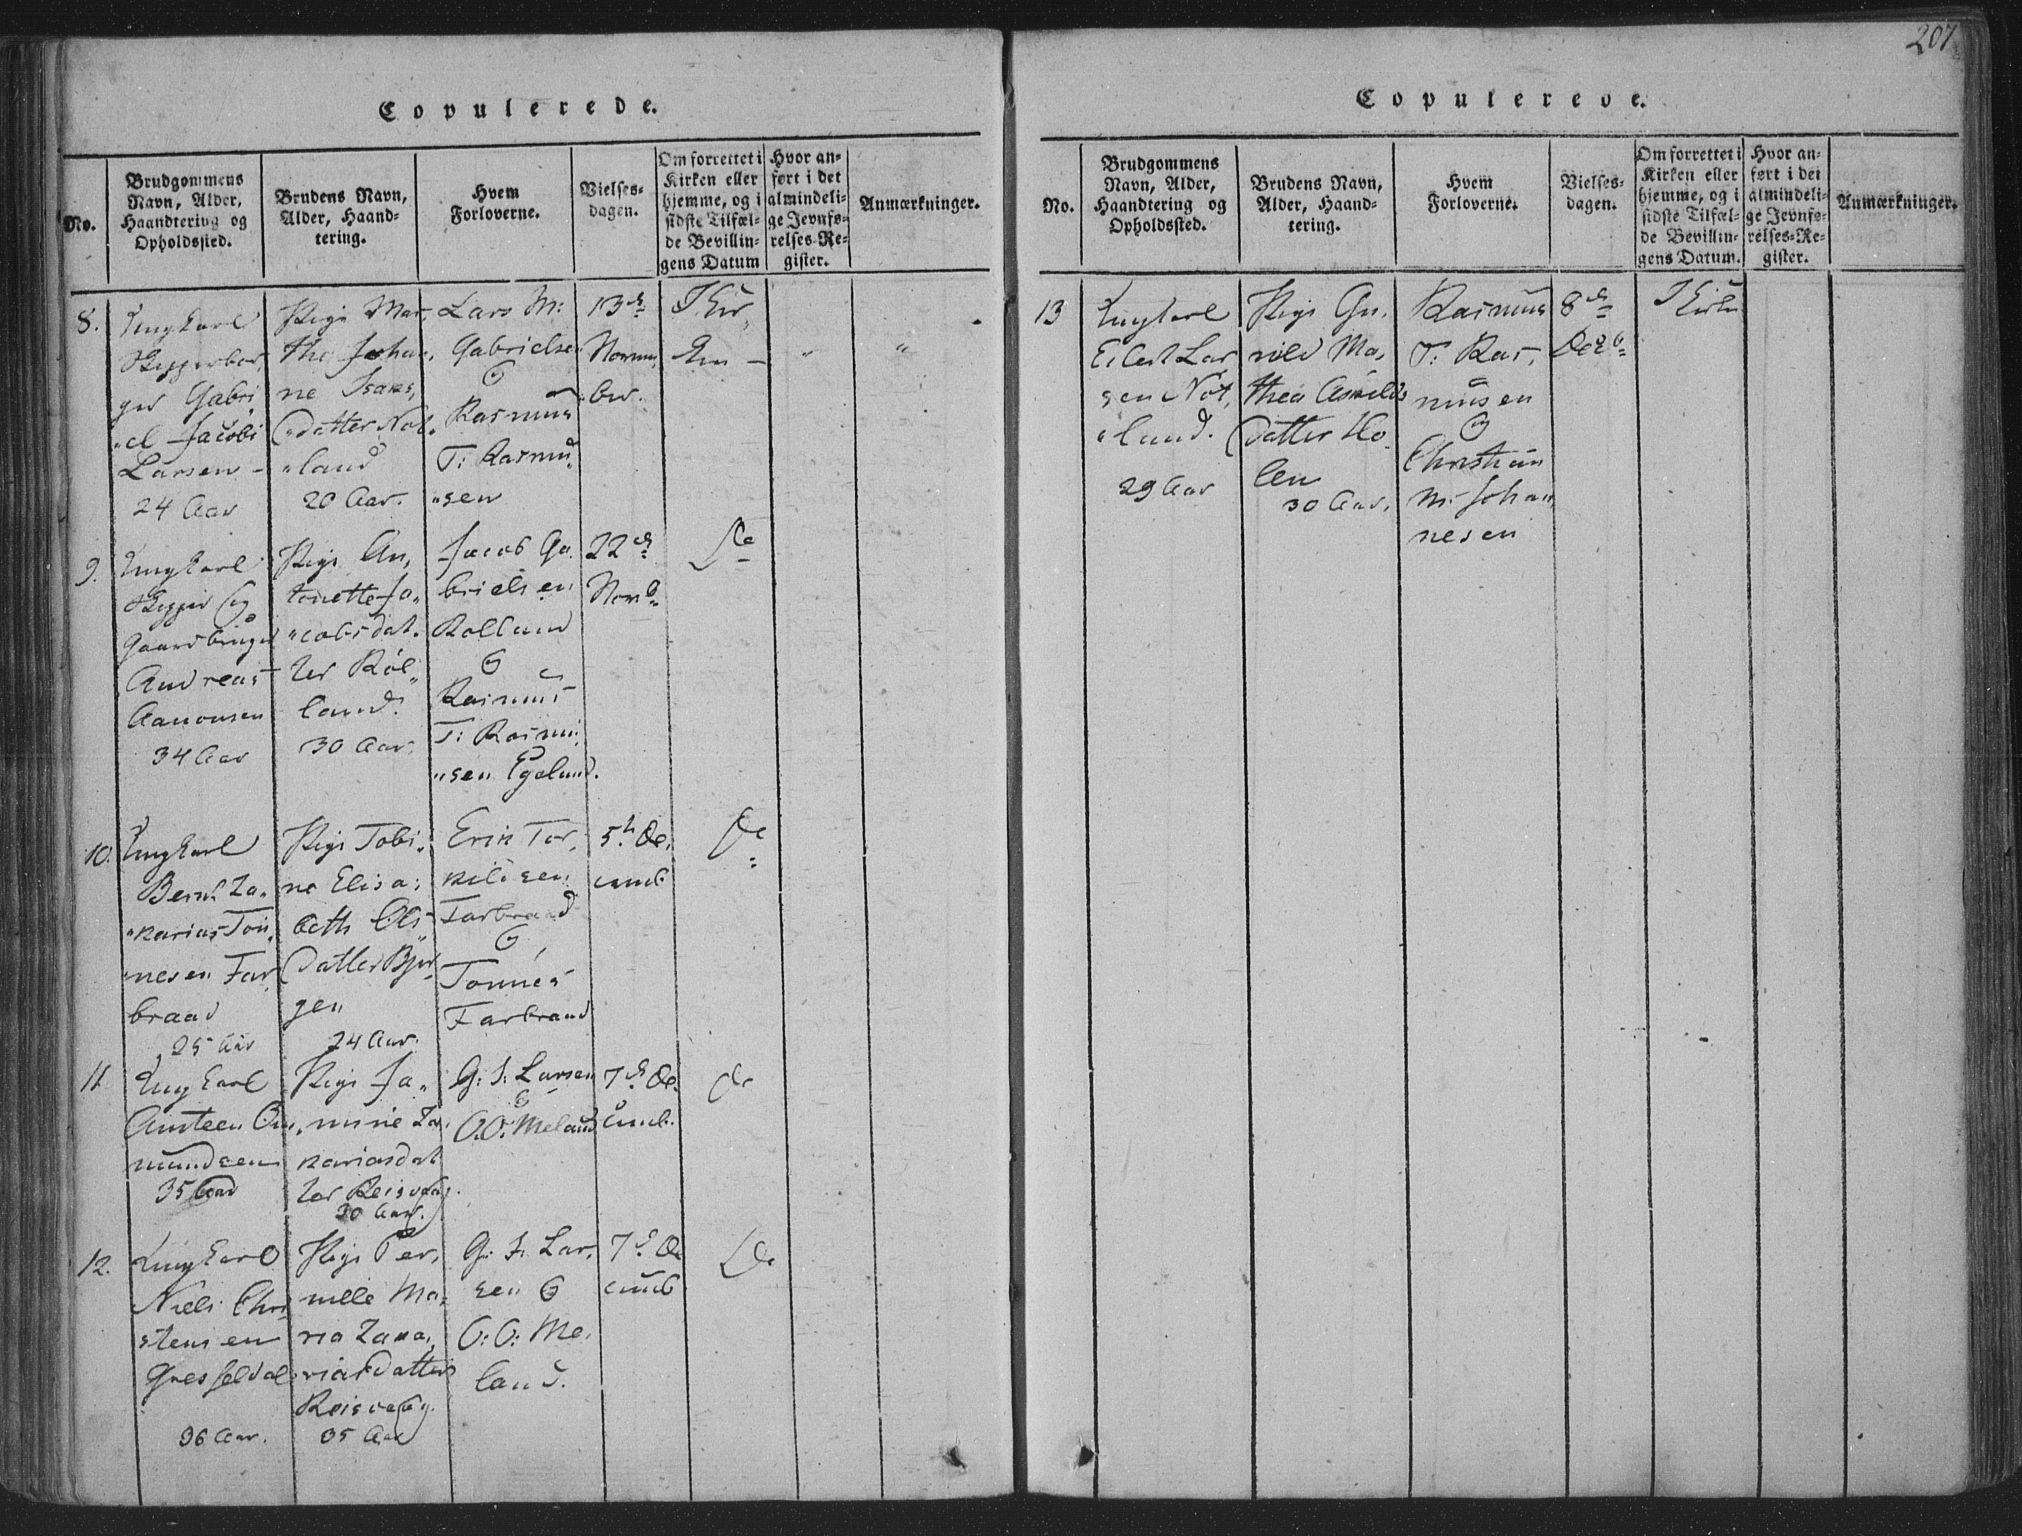 207
Copulerede.
No.
Brudgommens
Navn, Alder,
Haandtering og
Opholdssted.
Brudens Navn,
Alder, Haand-
tering.
Hvem
Forloverne.
Vielses-
dagen.
Om forrettet i
Kirken eller
hjemme, og i
sidste Tilfæl-
de Bevillin-
gens Datum
Hvor an-
ført i det
almindeli-
ge Jevnfø-
relses-Re-
gister.
Anmærkninger.
8.
Ungkarl
Gabri
el Jacobi
Larsen
24 Aar
Pige Mar,
the Johan,
ne Isaks,
Datter Nol
land
20 Aar.
Lars M:
Gabrielsen
Rasmus
T: Rasmu
sen
13de
Novem
ber.
I Kir
ken
"
"
9.
Ungkarl
Skipper og
Gaardbruger
Andreas
Aanonsen
34 Aar
Pige An,
tonette Ja
cobsdat
ter Rol
land
30 Aar.
Jacob Ga
brielsen
Rolland
Rasmus
T: Rasmu
sen Egeland.
22de
Novb
Do
10.
Ungkarl
Bernt Za
karias Ton
nesen Far
braad
25 Aar
Pige Tobi
ne Elisa
beth Ols
Datter Bjør
gen
24 Aar.
Erik Tor,
kildsen
Farbraad
Tonnes
Farbraad
5te De
cemb
Do
11.
Ungkarl
Anteen Om
mundsen
35 Aar
Pige Ja
mine Za
kariasdat
ter Reisvaag.
30 Aar.
G: J: Larsen
O.O. Meland
7de De
cemb.
Do
12.
Ungkarl
Niels Chri
stensen
Gresseldal
36 Aar.
Pige Per,
nille Ma
ria Zaka,
riasdatter
Reisvaag.
35 Aar
G: J: Lar,
sen &
O: O: Me,
land.
7de De
cemb
Do
Copulerede.
No.
Brudgommens
Navn, Alder,
Haandtering og
Opholdssted.
Brudens Navn,
Alder, Haand-
tering.
Hvem
Forloverne.
Vielses-
dagen.
Om forrettet i
Kirken eller
hjemme, og i
sidste Tilfæl-
de Bevillin-
gens Datum.
Hvor an-
ført i det
almindeli-
ge Jevnfø-
relses-Re-
gister.
Anmærkninger.
13
Ungkarl
Eilert Lar
sen Nøt,
land.
29 Aar
Pige Gu,
nild Ma,
thea Asmilds
Datter Ho
len
30 Aar,
Rasmus
T: Ras,
musen
Christian
M: Johan
nesen
8de
Decb
I Kirken